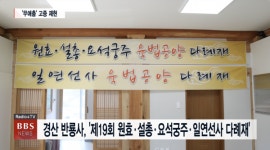 '무애춤' 고증 재현
원효·설총·요석궁주 육법공양 다례재
일연선사 육법공양 다례재
BBS
NEWS
경산 반룡사, '제19회 원효·설총·요석궁주·일연선사 다례재'